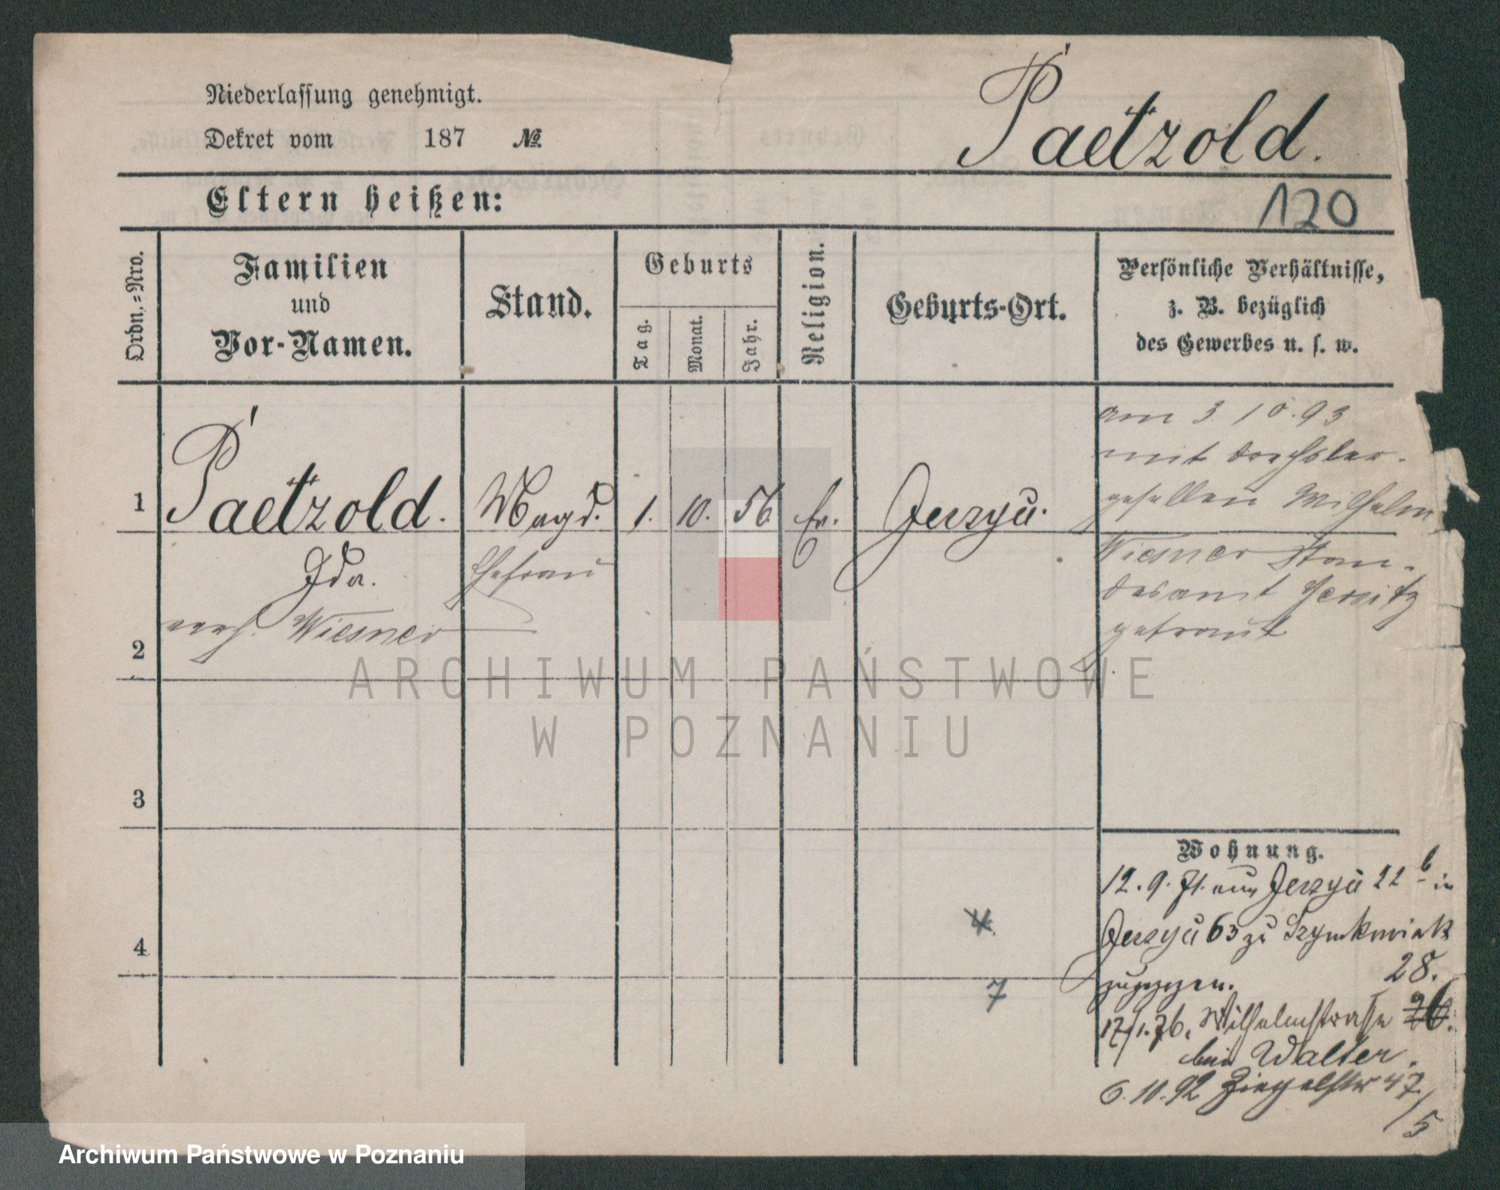 Niederlassung genehmigt.
Dekret vom 187 №
Paetzold.
Eltern heißen:
120
Ordn.=Nro.
Familien
und
Vor-Namen.
Stand.
Geburts
Tag.
Monat.
Jahr.
Religion.
Geburts-Ort.
Persönliche Verhältnisse,
z. B. bezüglich
des Gewerbes u. s. w.
1 Paetzold. Magd. 1. 10. 56 Ev. Jerzyce.
Ida. Ehefrau
verh. Wiesner
am 3 10. 93
mit Drechsler-
gesellen Wilhelm
Wiesner Stan-
desamt Jersitz
getraut
2
3
4
4.
7
Wohnung.
12. 9. 71. aus Jerzyce 22 b in
Jerzyce 63 zu Szymkowiak
zugezogen. 28.
17/1. 76. Wilhelmstrasse 26.
bei Walter.
6. 11. 92 Ziegelstr 47
/5
ARCHIWUM PAŃSTWOWE
W POZNANIU
Archiwum Państwowe w Poznaniu